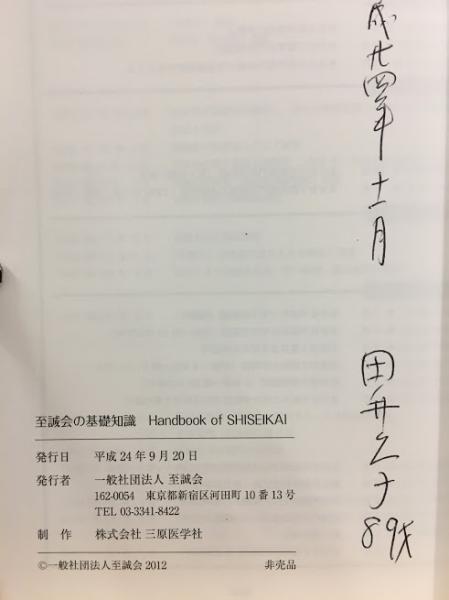 成廿四年 十一月
田 子 89才
至誠会の基礎知識 Handbook of SHISEIKAI
発行日 平成 24 年 9 月 20 日
発行者 一般社団法人 至誠会
162-0054 東京都新宿区河田町 10 番 13 号
TEL 03-3341-8422
制 作 株式会社 三原医学社
©一般社団法人至誠会 2012 非売品